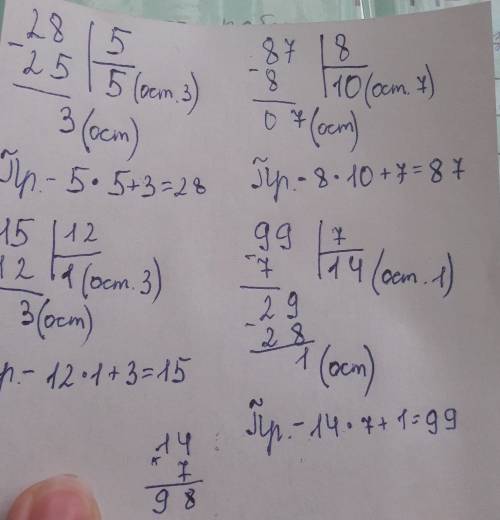 28 | 5
- 25 | 5 (ост. 3)
3 (ост)
Пр. - 5 · 5 + 3 = 28
87 | 8
- 8 | 10 (ост. 7)
07 (ост)
Пр. - 8 · 10 + 7 = 87
15 | 12
12 | 1 (ост. 3)
3 (ост)
р. - 12 · 1 + 3 = 15
99 | 7
- 7 | 14 (ост. 1)
29
- 28
1 (ост)
Пр. - 14 · 7 + 1 = 99
14
× 7
98